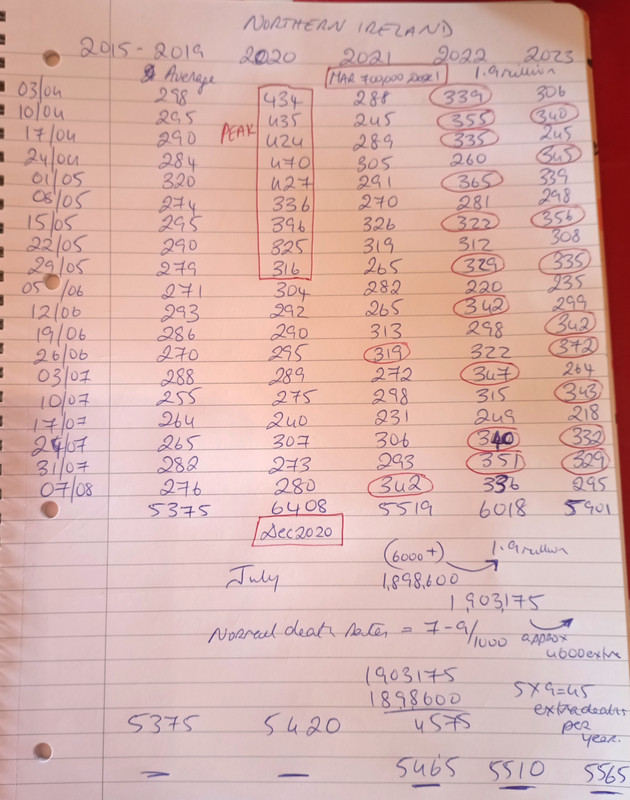 NORTHERN IRELAND
2015-2019 2020 2021 2022 2023
Average MAR 700,000 Dose 1 1.9 million
03/04 298 434 288 339 306
10/04 295 435 245 355 340
17/04 290 PEAK 424 289 335 245
24/04 284 470 305 260 345
01/05 320 427 291 365 339
08/05 274 336 270 281 298
15/05 295 396 326 322 356
22/05 290 325 319 312 308
29/05 279 316 265 329 335
05/06 271 304 282 220 235
12/06 293 292 265 342 299
19/06 286 290 313 298 342
26/06 270 295 319 322 372
03/07 288 289 272 347 264
10/07 255 275 298 315 343
17/07 264 240 231 249 218
24/07 265 307 306 340 332
31/07 282 273 293 351 329
07/08 276 280 342 336 295
5375 6408 5519 6018 5901
Dec 2020
(6000+) 1.9 million
July 1,898,600
1,903,175
Normal death rates = 7-9/1000 approx
4600 extra
1903175
1898600 5x9=45
5375 5420 4575 extra deaths
per
year.
5465 5510 5565